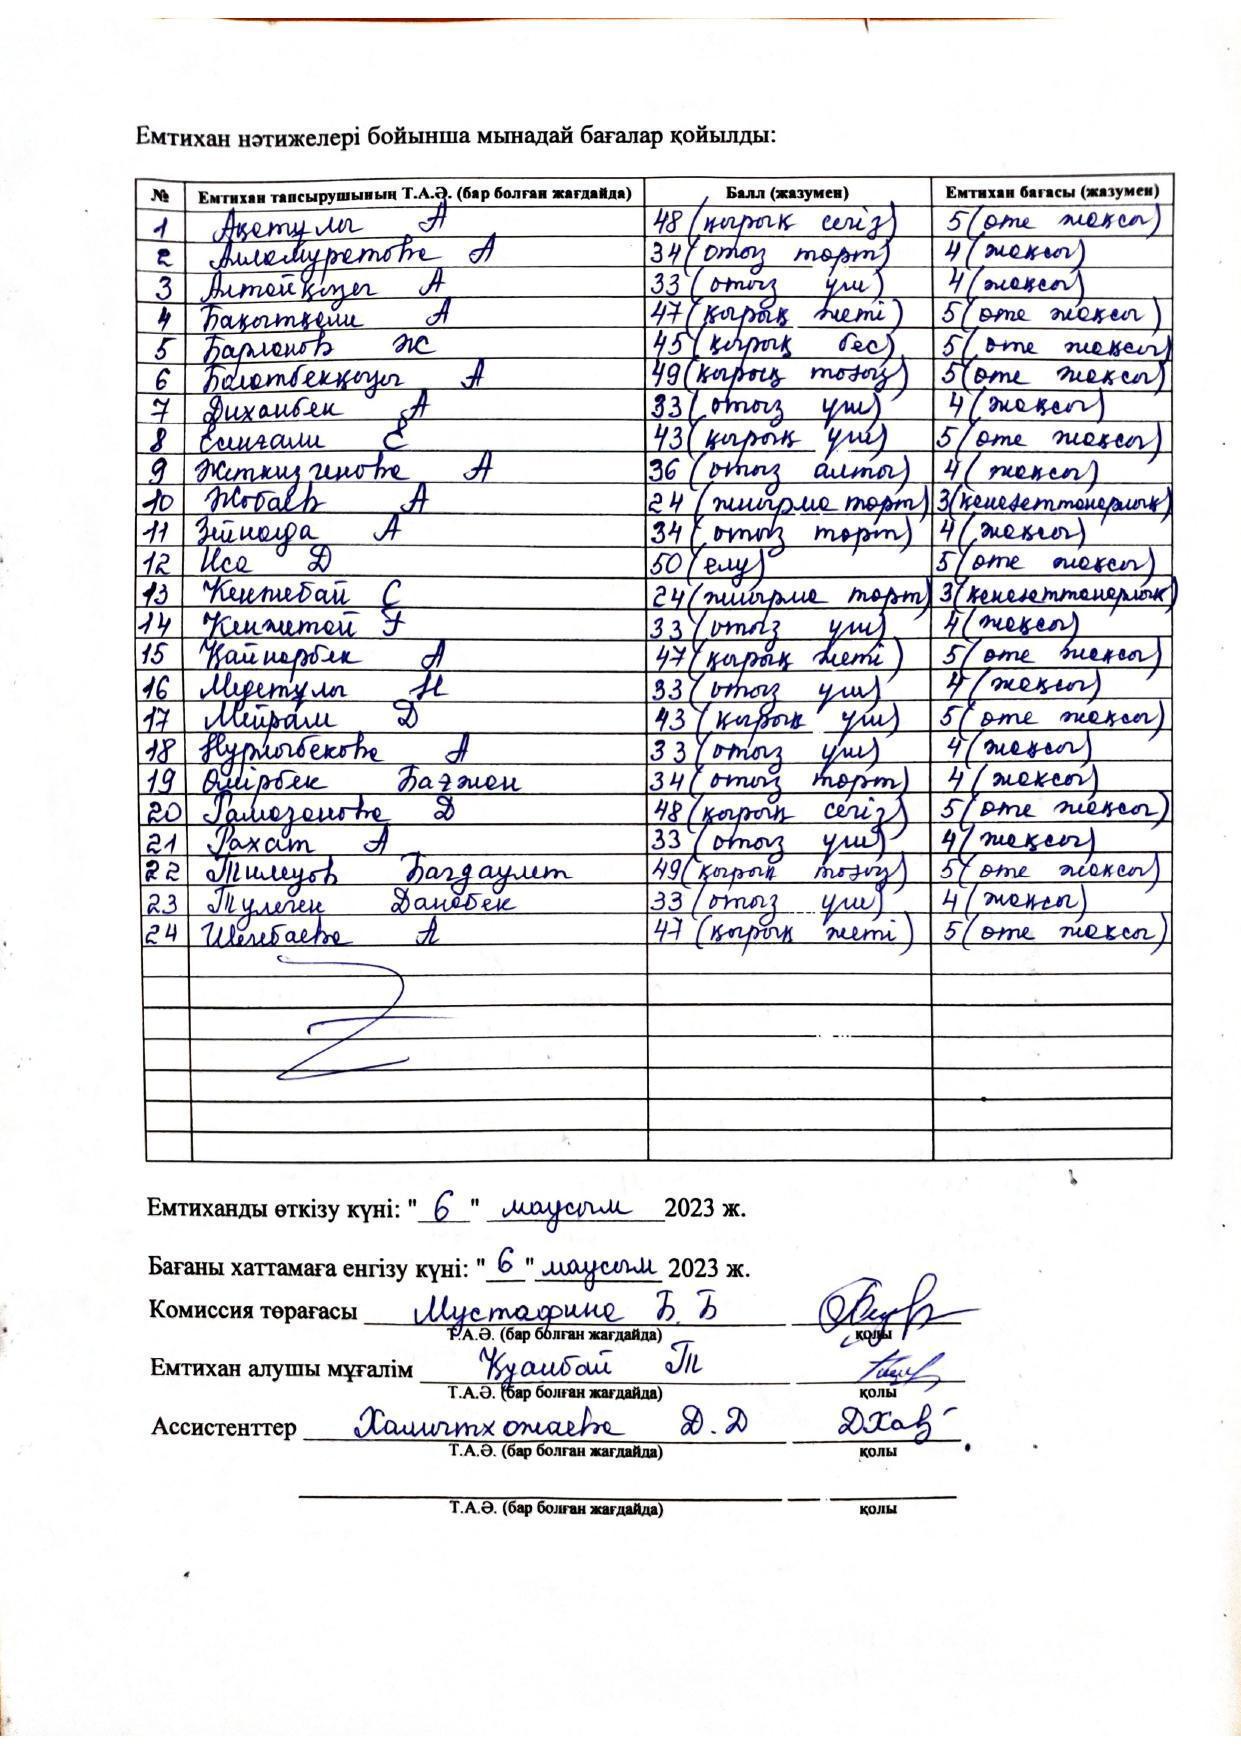 Емтихан нәтижелері бойынша мынадай бағалар қойылды:
№ Емтихан тапсырушының Т.А.Ә. (бар болған жағдайда) Балл (жазумен) Емтихан бағасы (жазумен)
1 Ақатұлы А 48 (қырық сегіз) 5 (өте жақсы)
2 Алламуратова А 34 (отыз төрт) 4 (жақсы)
3 Алтайқызы А 33 (отыз үш) 4 (жақсы)
4 Бақытқали А 47 (қырық жеті) 5 (өте жақсы)
5 Барланов Ж 45 (қырық бес) 5 (өте жақсы)
6 Болатбекқызы А 49 (қырық тоғыз) 5 (өте жақсы)
7 Диханбек А 33 (отыз үш) 4 (жақсы)
8 Есенғали Е 43 (қырық үш) 5 (өте жақсы)
9 Жеткизгенова А 36 (отыз алты) 4 (жақсы)
10 Жобаев А 24 (жиырма төрт) 3 (қанағаттанарлық)
11 А 34 (отыз төрт) 4 (жақсы)
12 Иса Д 50 (елу) 5 (өте жақсы)
13 Кентебай С 24 (жиырма төрт) 3 (қанағаттанарлық)
14 Кенжетай Ғ 33 (отыз үш) 4 (жақсы)
15 Қайнарбек А 47 (қырық жеті) 5 (өте жақсы)
16 Медетұлы Н 33 (отыз үш) 4 (жақсы)
17 Мейрам Д 43 (қырық үш) 5 (өте жақсы)
18 Нурлыбекова А 33 (отыз үш) 4 (жақсы)
19 Өмірбек Бағжан 34 (отыз төрт) 4 (жақсы)
20 Рамазанова Д 48 (қырық сегіз) 5 (өте жақсы)
21 Рахат А 33 (отыз үш) 4 (жақсы)
22 Тилеуов Бағдаулет 49 (қырық тоғыз) 5 (өте жақсы)
23 Тулеген Данабек 33 (отыз үш) 4 (жақсы)
24 А 47 (қырық жеті) 5 (өте жақсы)
Емтиханды өткізу күні: "6" маусым 2023 ж.
Бағаны хаттамаға енгізу күні: "6" маусым 2023 ж.
Комиссия төрағасы Мустафина Б. Б
Т.А.Ә. (бар болған жағдайда) қолы
Емтихан алушы мұғалім Қуанбай Т
Т.А.Ә. (бар болған жағдайда) қолы
Ассистенттер Д. Д
Т.А.Ә. (бар болған жағдайда) қолы
Т.А.Ә. (бар болған жағдайда) қолы